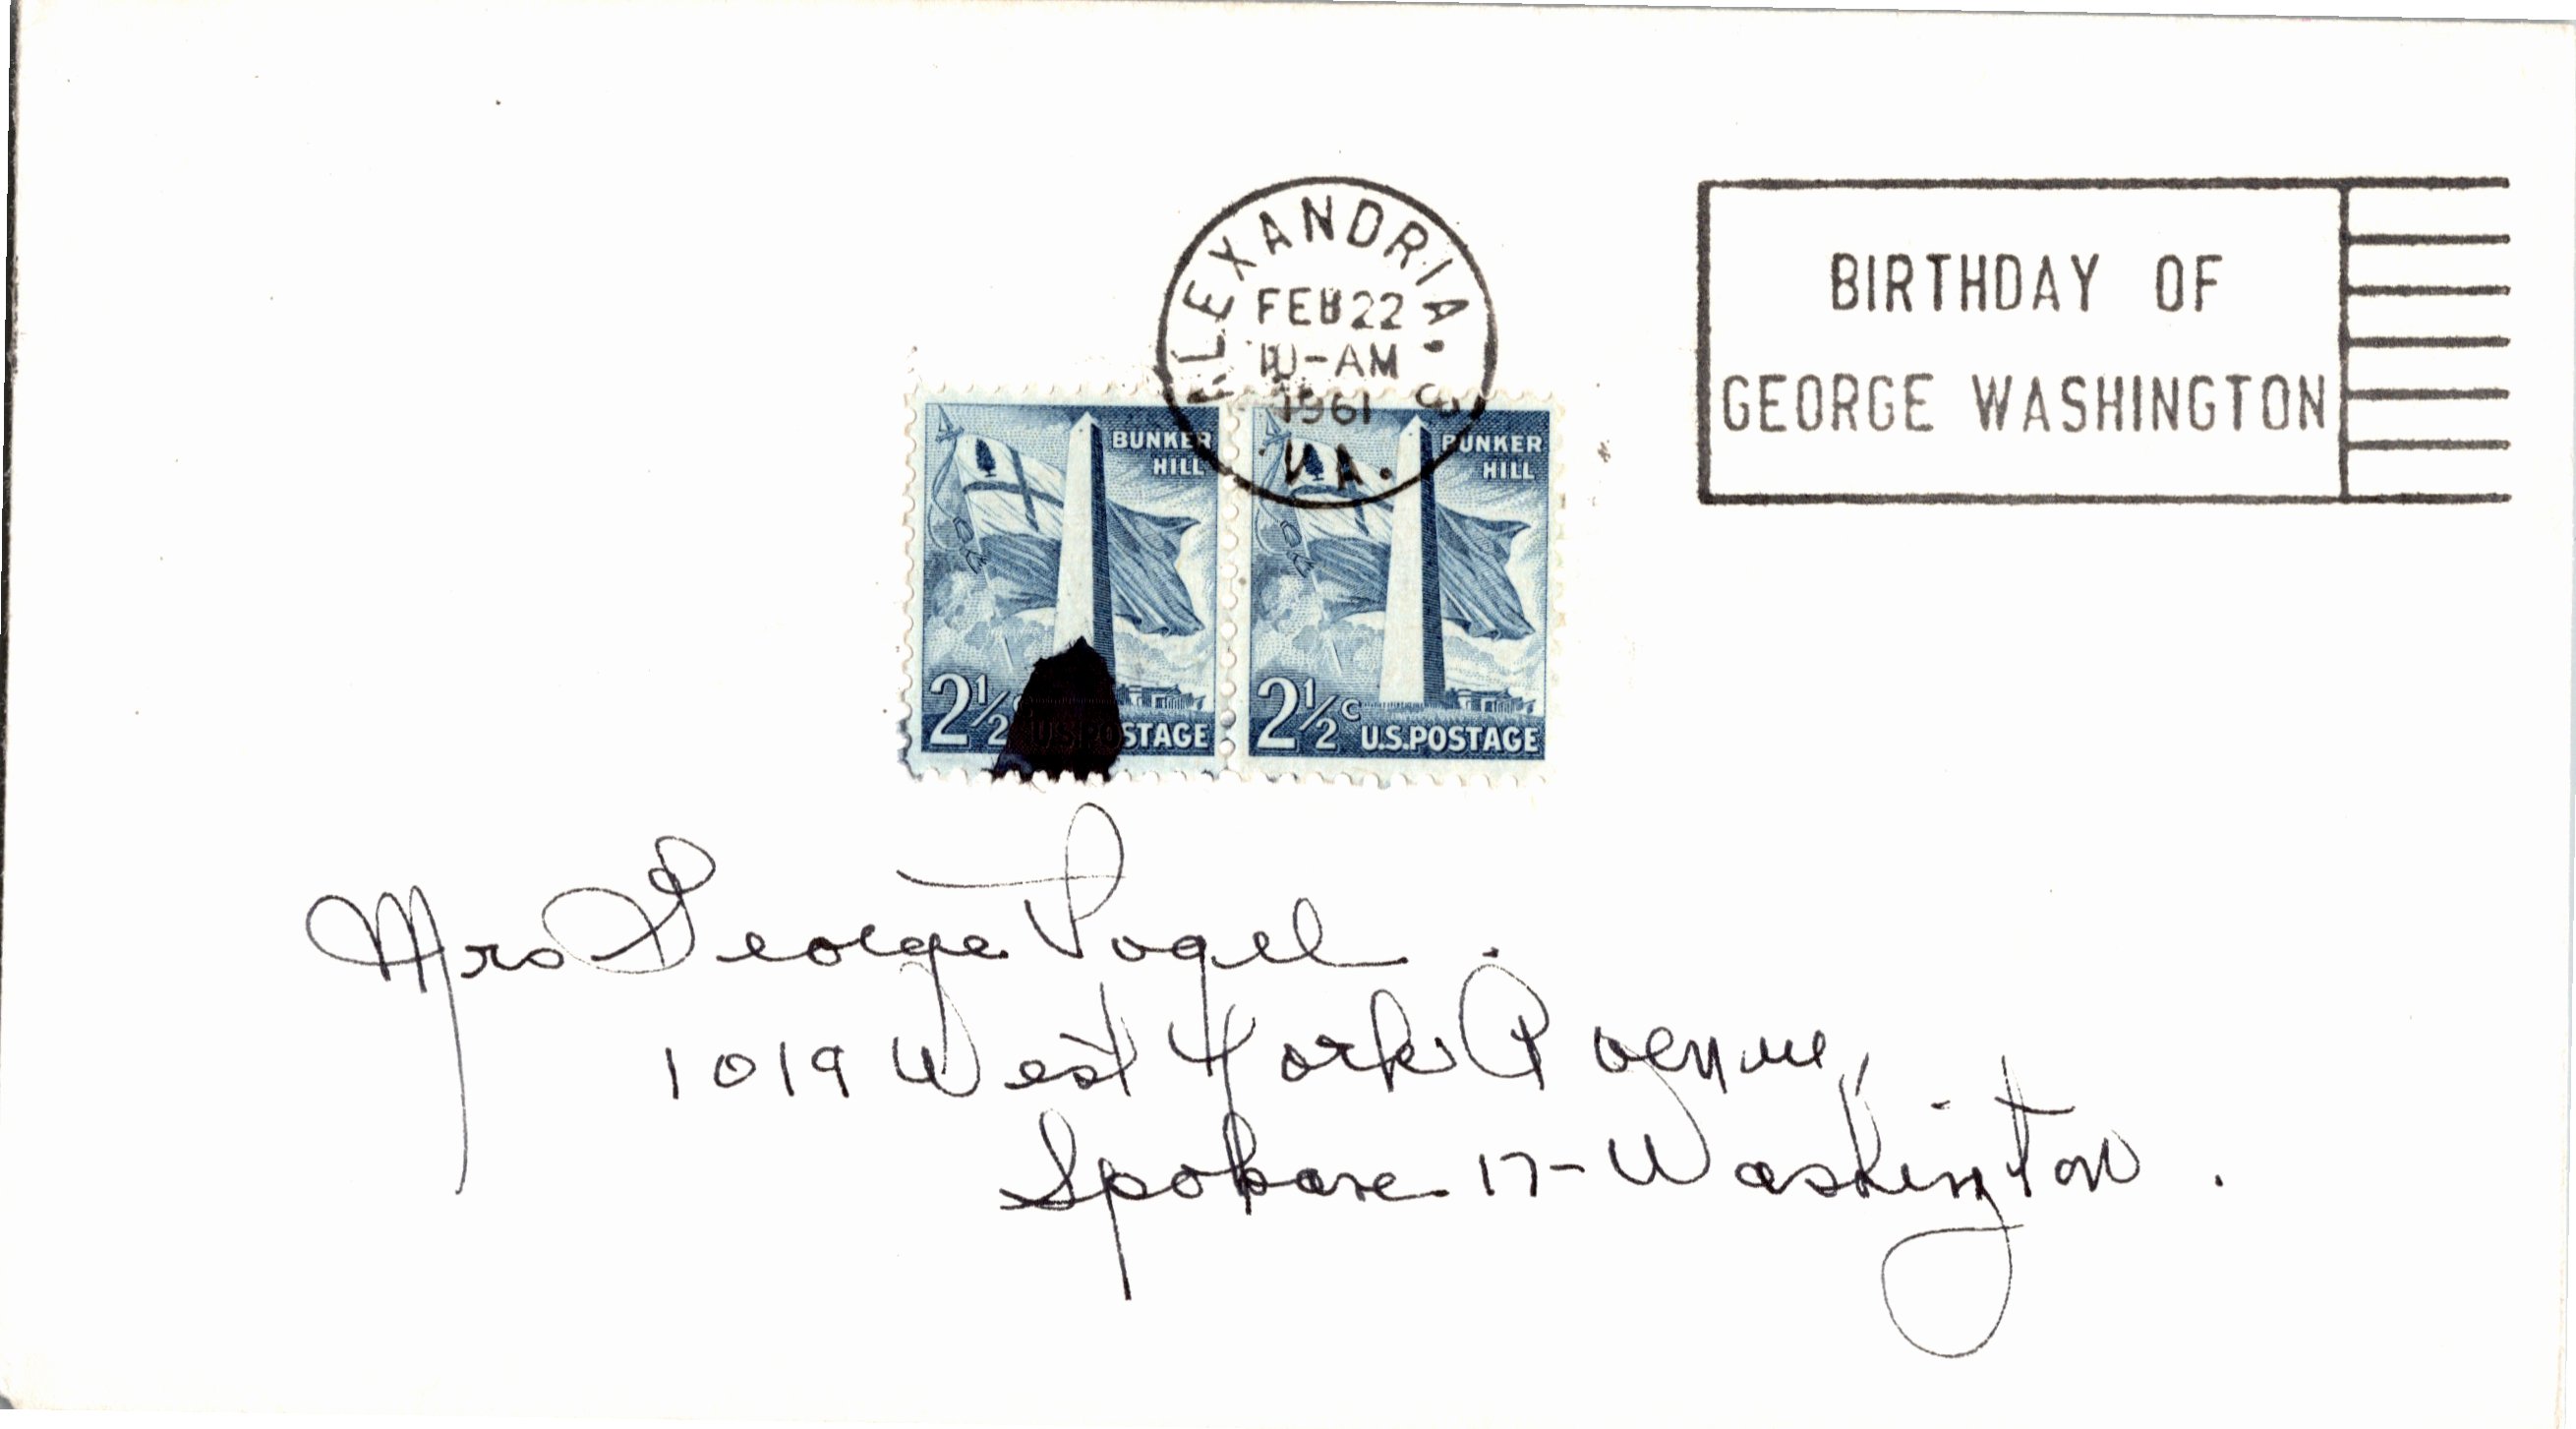 ALEXANDRIA,
FEB 22
10-AM
1961
VA.
BIRTHDAY OF
GEORGE WASHINGTON
BUNKER
HILL
2½c U.S.POSTAGE
BUNKER
HILL
2½c U.S.POSTAGE
Mrs George Vogel.
1019 West York Avenue,
Spokane 17-Washington.